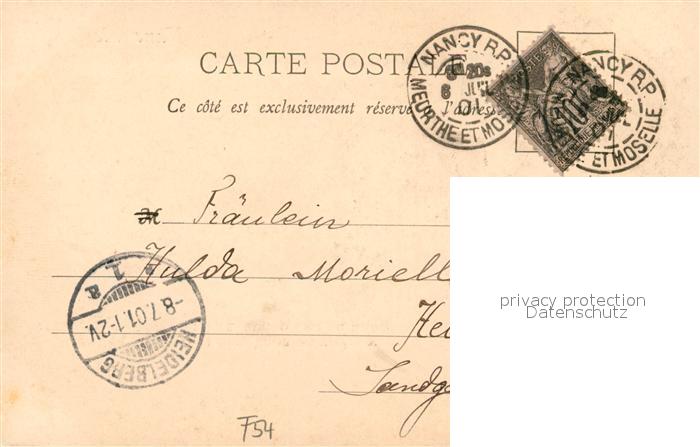 CARTE POSTALE
Ce côté est exclusivement réservé à l'adresse
NANCY R.P.
6 JUIL 01
MEURTHE ET MOSELLE
NANCY R.P.
ET MOSELLE
Fräulein
Hulda Moriell
Hei
Sandg
HEIDELBERG
-8.7.01.1-2V.
1 a
privacy protection
Datenschutz
F54